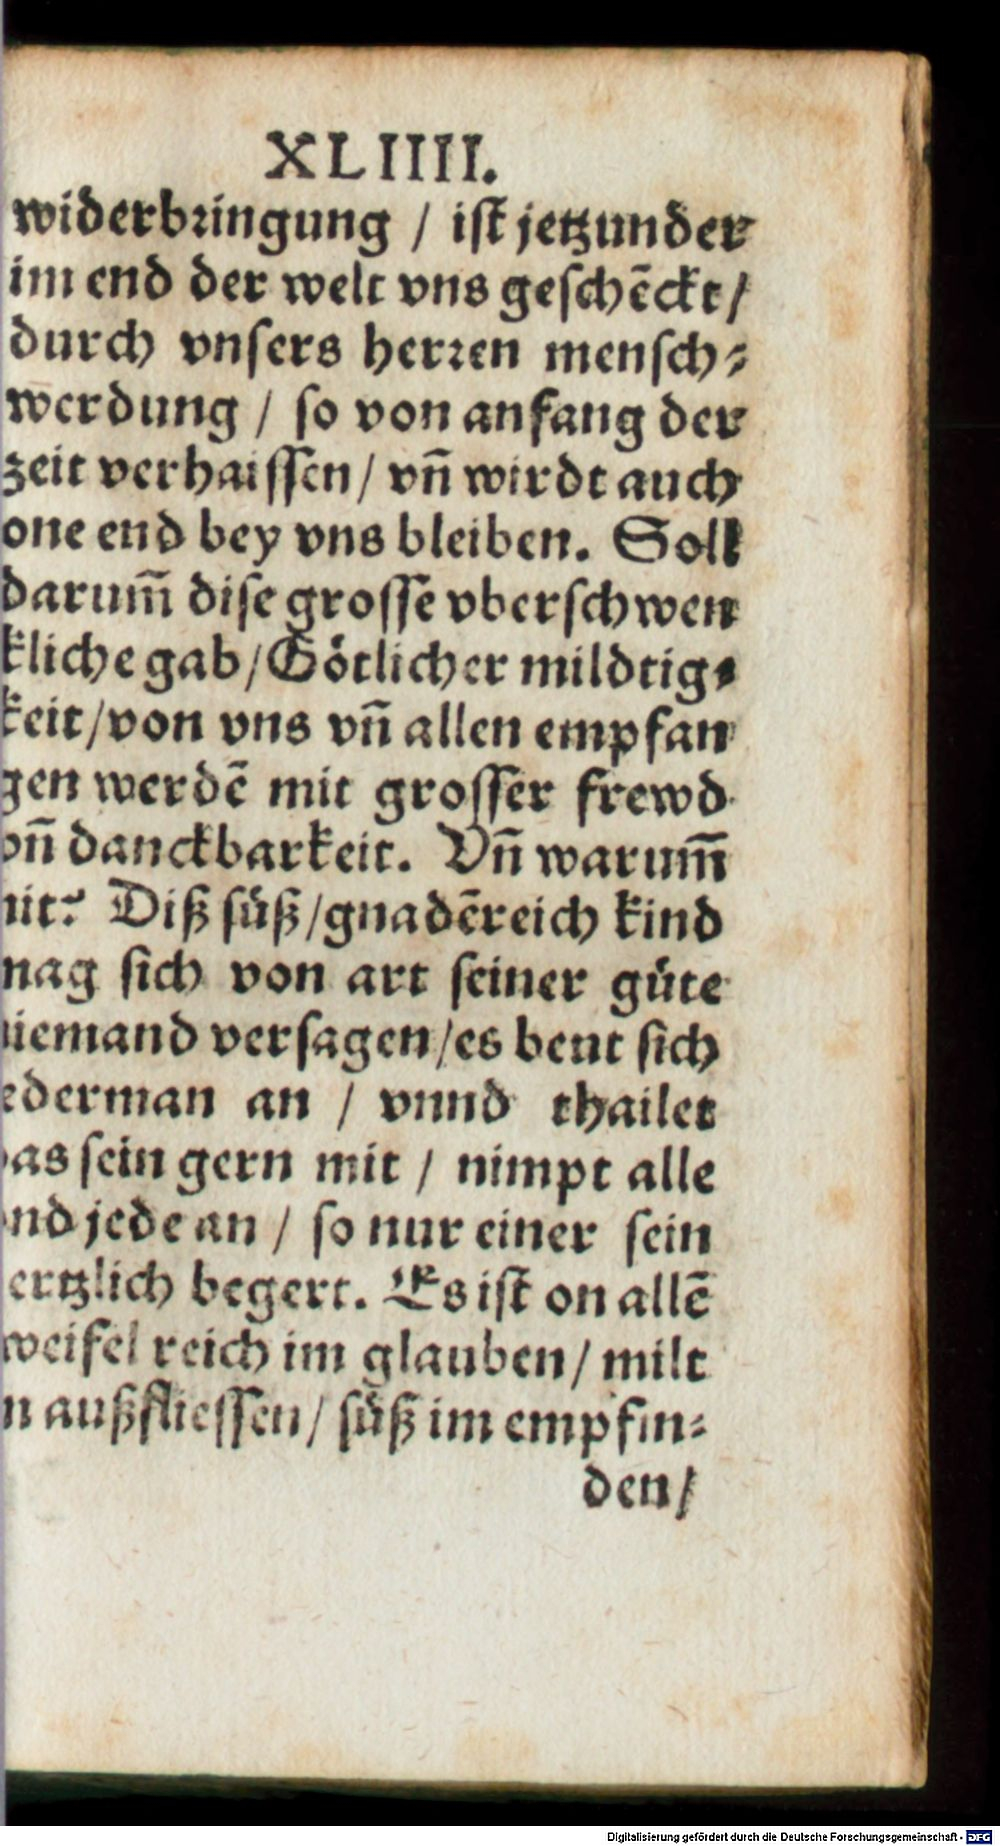 XLIIII.
widerbꝛingung / iſt jetzunder
im end der welt vns geſchēckt/
durch vnſers herꝛen menſch⸗
werdung / ſo von anfang der
zeit verhaiſſen/ vn̄ wirdt auch
one end bey vns bleiben. Soll
darum̄ diſe groſſe vberſchwen
kliche gab/Götlicher mildtig⸗
keit/von vns vn̄ allen empfan
gen werdē mit groſſer frewd
vn̄ danckbarkeit. Vn̄ warum̄
nit? Diß ſüß/gnadēreich kind
mag ſich von art ſeiner güte
niemand verſagen/es beut ſich
ederman an / vnnd thailet
das ſein gern mit / nimpt alle
vnd jede an / ſo nur einer ſein
ertzlich begert. Es iſt on allē
weifel reich im glauben/ milt
n außflieſſen/ ſüß im empfin⸗
den/
Digitalisierung gefördert durch die Deutsche Forschungsgemeinschaft - DFG